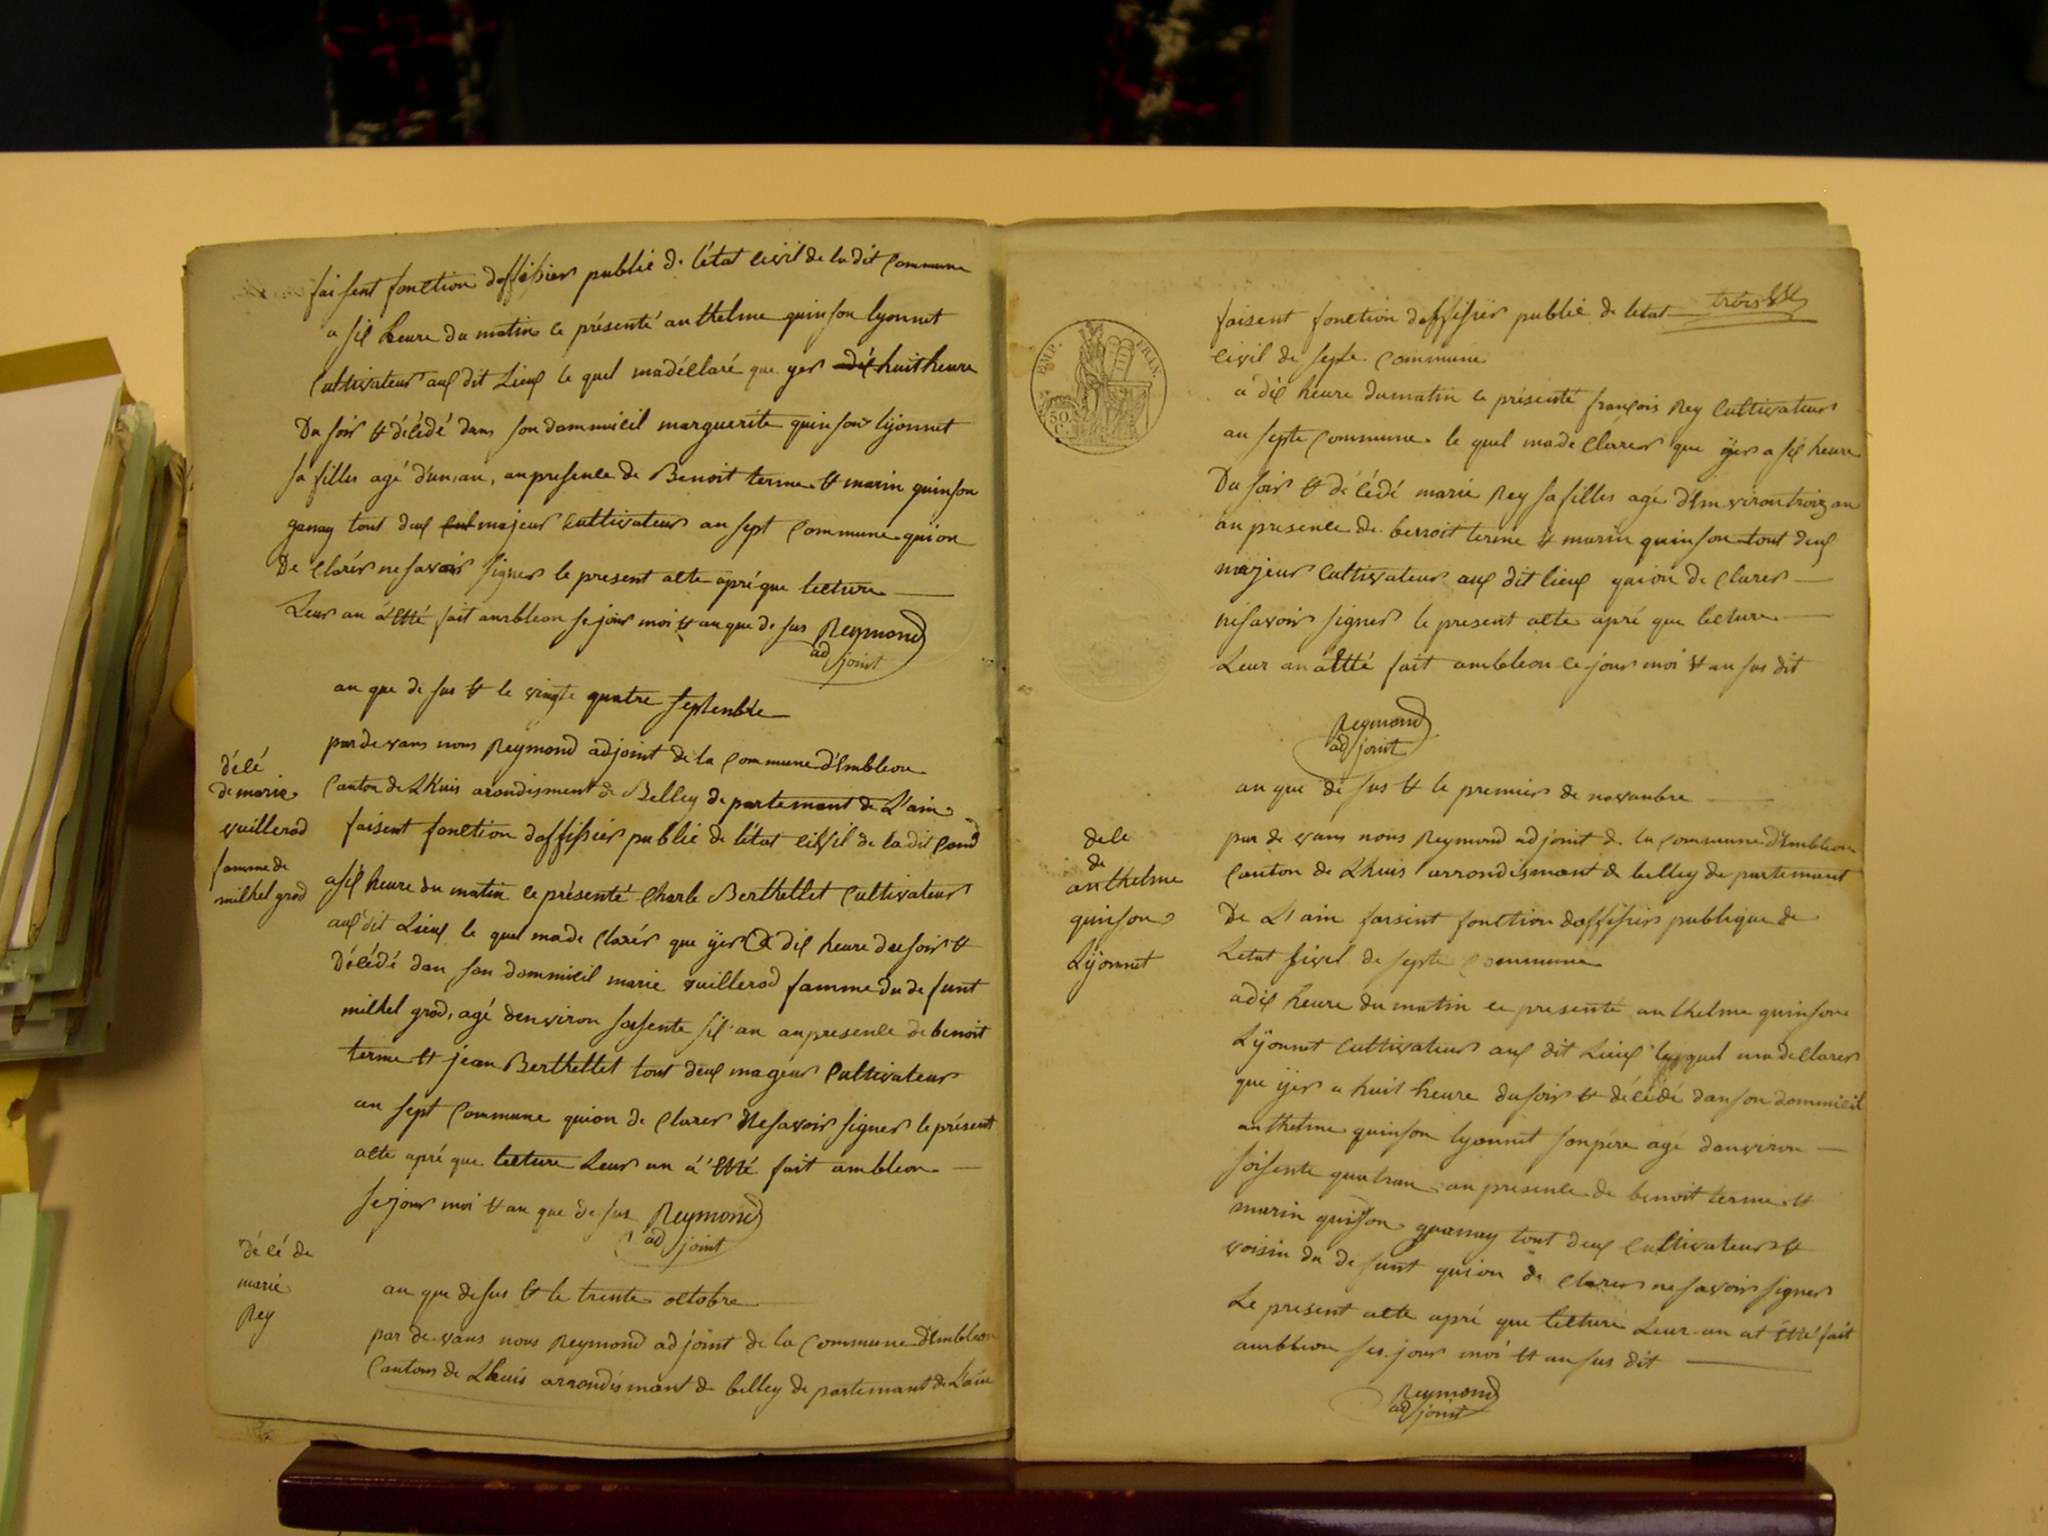 faisent fonction doffisier publié de létat civil de la dit Commune
a six heure du matin ce présenté anthelme quinson lyonnet
Cultivateur aux dit Lieux le quel madéclaré que yer dix huit heure
Du soir et décédé dans son dommicil marguerite quinson lyonnet
sa filles agé d'un an, an presence de Benoit terme et marin quinson
ganay tout deux majeur Cultivateur au sept Commune qui on
De clarér ne savoir signer le present acte apré que lecture
Leur an à etté fait ambleon se jour moi et an que de sus Reymond
ad joint
an que de sus et le vingte quatre septembre
décé
de marie
vuillerod
famme de
milhel grod
par de vans nous Reymond adjoint de la Commune d'Embleon
Canton de Lhuis arondisment de Belley de partemant de L'ain
faisent fonction doffisier publié de létat civil de la dit Comd
a six heure du matin ce présenté Charle Berthellet Cultivateur
aux dit Lieux le quel ma de clarér que yer a dix heure du soir et
Décédé dan son dommicil marie vuillerod famme du defunt
milhel grod, agé denviron soisente six an an presence de benoit
terme et jean Berthellet tout deux mageur Cultivateur
au sept Commune qui on de clarer Nesavoir signer le présent
acte apré que lecture Leur an à etté fait ambleon
se jour moi et an que de sus Reymond
ad joint
décé de
marie
Rey
an que de sus et le trente octobre
par de vans nous Reymond ad joint de la Commune d'Embleon
Cantons de Lhuis arrondismant de belley de partemant de L'ain
faisent fonction doffisier publié de létat
EMP. FRAN.
50 C.
civil de septe Commune
a dix heure du matin ce présenté françois Rey Cultivateur
au septe Commune le quel ma de clarer que yer a six heure
Du soir et décédé marie Rey sa filles agé d'Enviroin troiz an
an presence de benoit terme et marin quinson tout deux
majeur Cultivateur aux dit lieux qui on de clarer
ne savoir signer le present acte apré que lecture
Leur an a etté fait ambleon ce jour moi et an sus dit
Reymond
ad joint
an que de sus et le premier de novanbre
dece
de
anthelme
quinson
Lÿonnet
par de vans nous Reymond adjoint de la commune d'Embleon
Canton de Lhuis arrondismant de belley de partemant
De L'ain faisint fonction doffisier publique de
Letat sivil de septe Commune
a dix heure du matin ce presenté anthelme quinson
Lÿonnet Cultivateur aux dit Lieux le quel ma declarer
que yer a huit heure du soir et décédé dan son dommicil
anthelme quinson lyonnet son pére agé danviron
soisente quatran an presence de benoit terme et
marin quinson ganay tout deux Cultivateur et
voisin du defunt qui on de clarer ne savoir signer
Le present acte apré que lecture Leur an at etté fait
ambleon ses jour moi et an sus dit
Reymond
ad joint